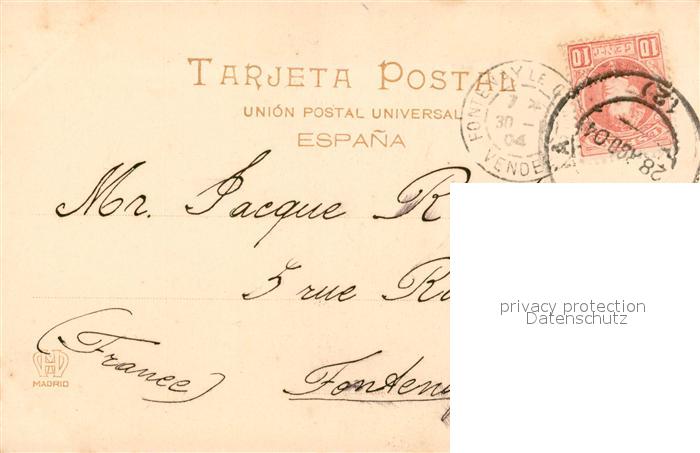 TARJETA POSTAL
UNIÓN POSTAL UNIVERSAL
ESPAÑA
FONTENAY LE C
7
30
04
VENDEE
10 CENT. 10
(12)
28 AGO 04
Mr. Jacque R
5 rue R
(France)
Fontena
MADRID
privacy protection
Datenschutz